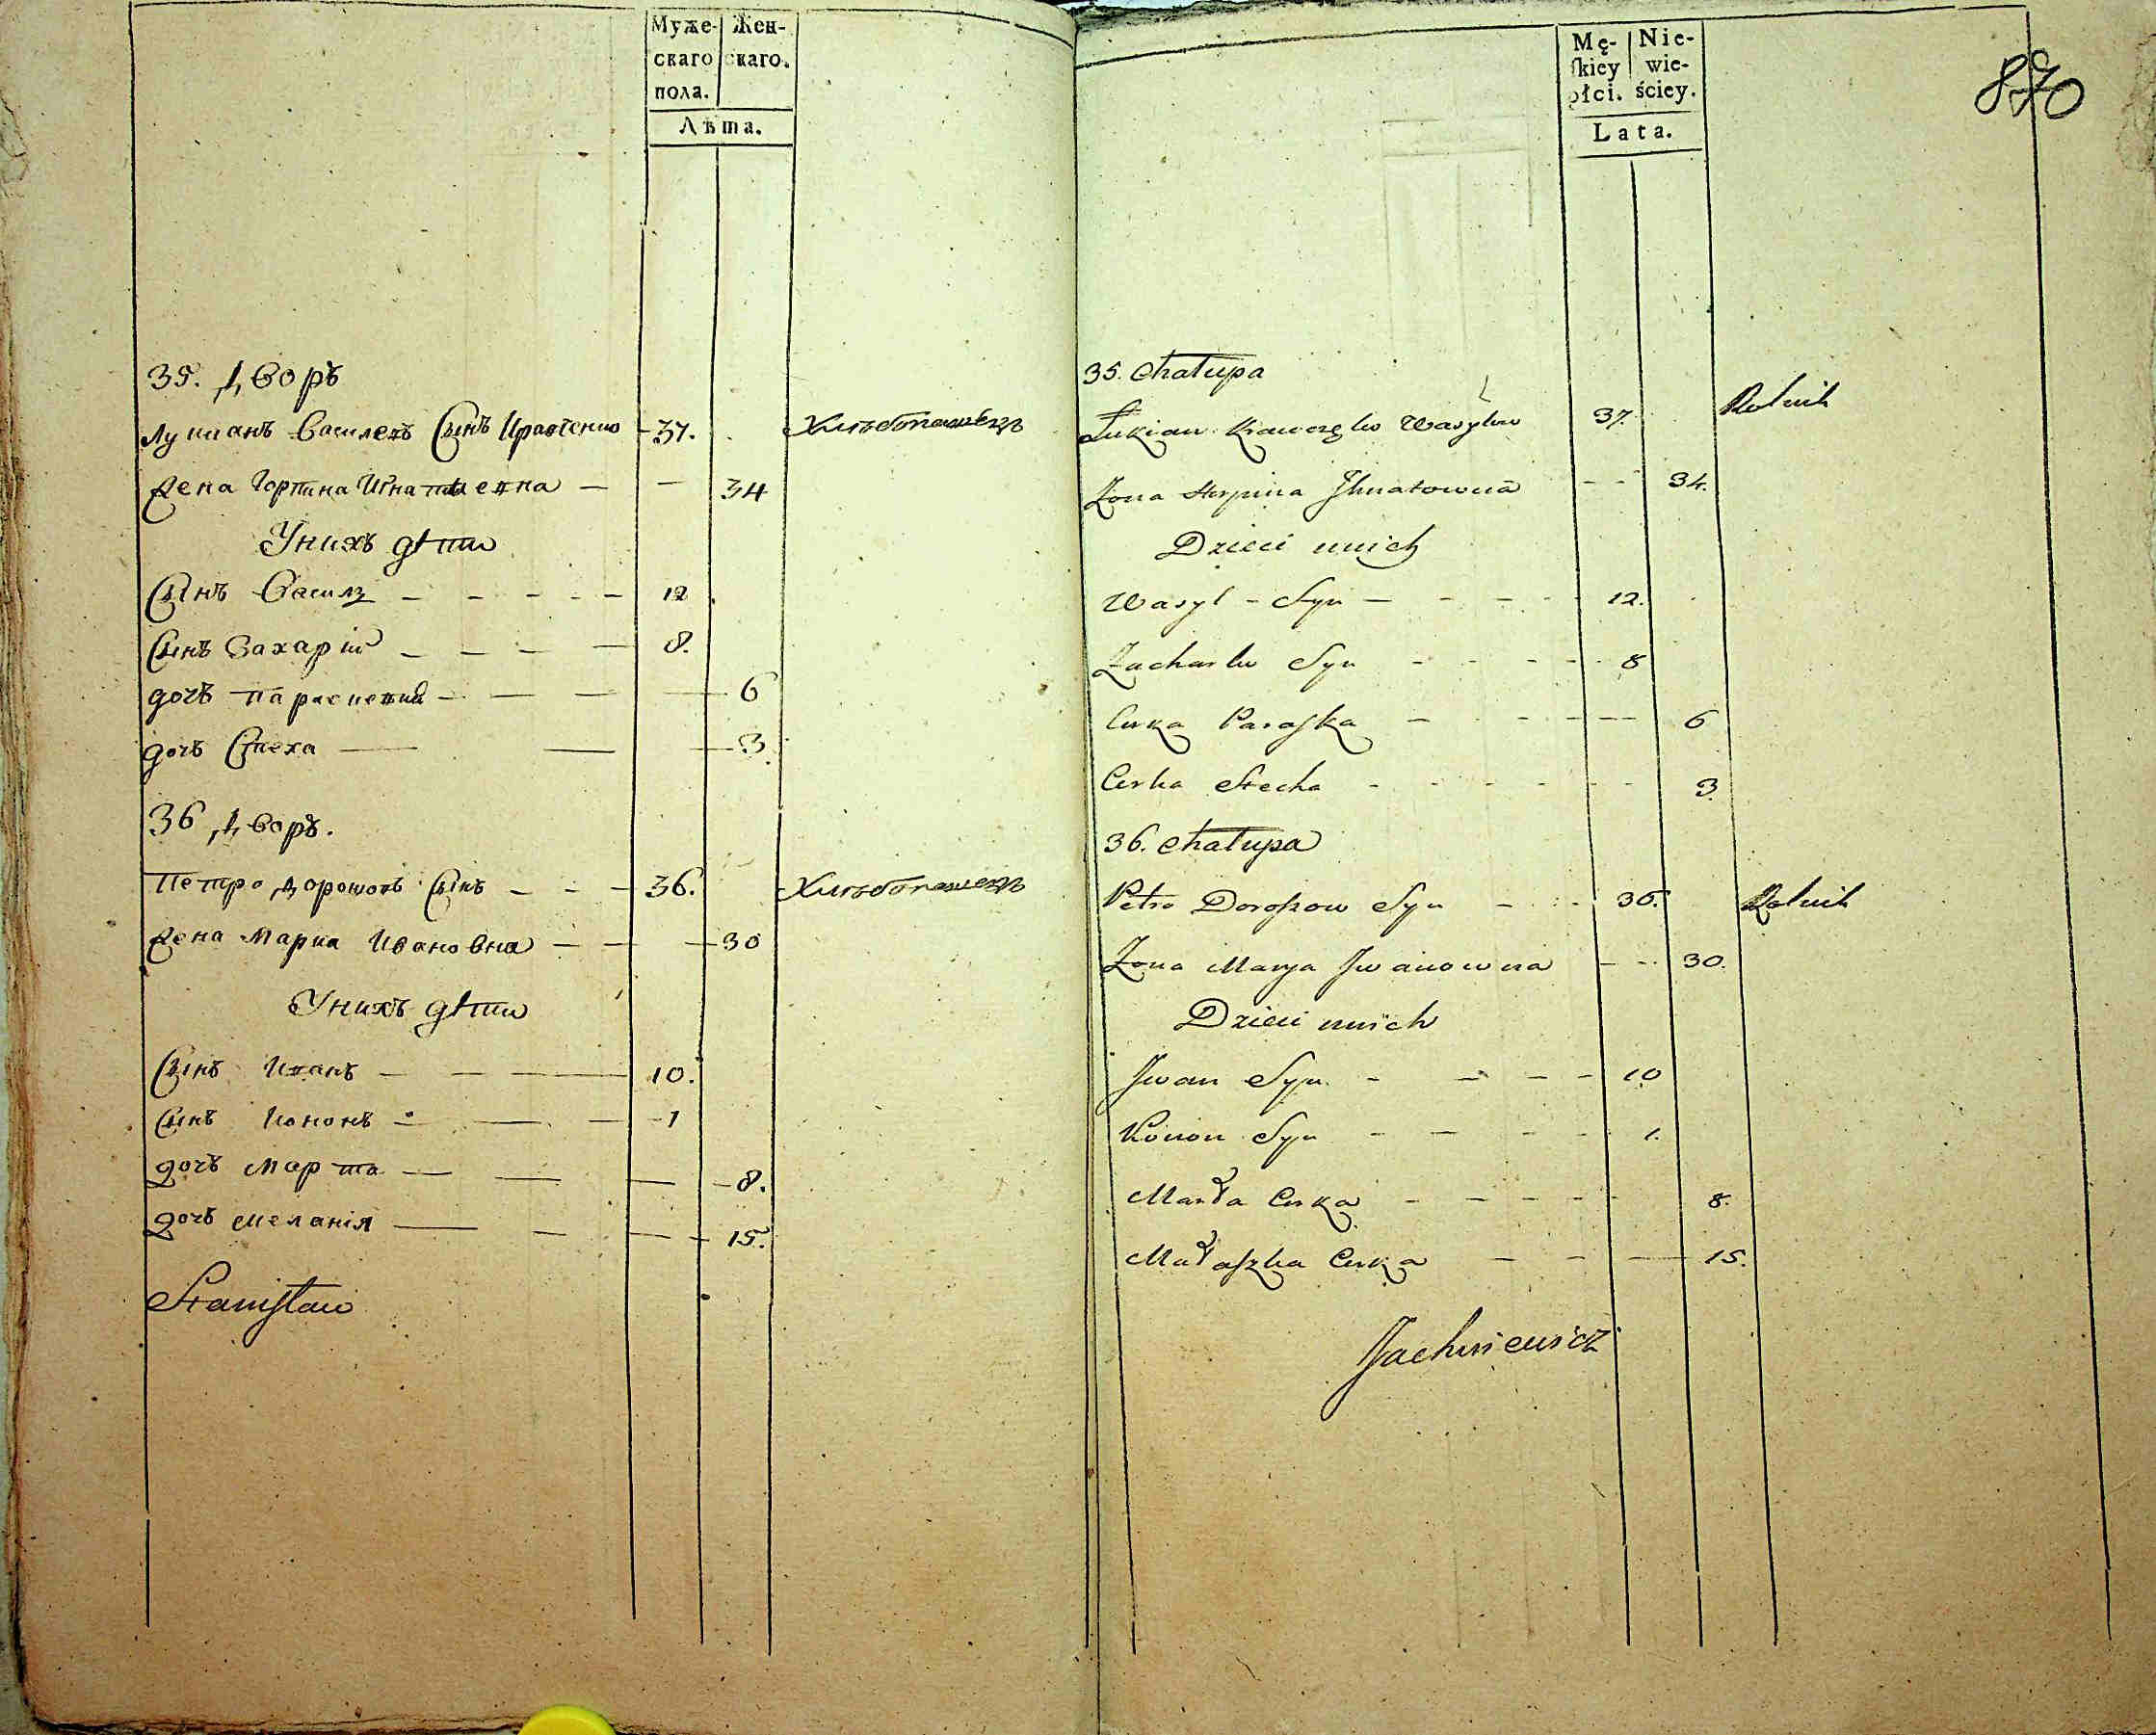 Муже- Жен-
скаго скаго.
пола.
Лѣта.
35. Дворъ
Лукианъ Василевъ Сынъ Кравченко 37. Хлѣбопашецъ
Жена Горпина Игнатиевна — — 34
У нихъ дѣти
Сынъ Василь — — — — — 12
Сынъ Захарій — — — — 8.
дочъ Параскевия — — — — 6
дочъ Стеха — — — 3
36 Дворъ.
Петро Дорошовъ Сынъ — — — 36. Хлѣбопашецъ
Жена Мариа Ивановна — — — 30
У нихъ дѣти
Сынъ Иванъ — — — — 10.
Сынъ Кононъ — — — 1
дочъ Марта — — — — 8.
дочъ Меланія — — — — 15.
Stanisław
Mę- Nie-
skiey wie-
płci. ściey.
Lata.
870
35. Chałupa
Łukian Krawczęko Wasylow 37. Rolnik
Żona Horpina Ihnatowna — — 34.
Dzieci unich
Wasyl – Syn — — — — 12.
Zacharko Syn — — — — 8
Curka Paraska — — — — 6
Curka Stecha — — — — — 3.
36. Chałupa
Petro Doroszow Syn — — 36. Rolnik
Żona Marya Jwanowna — — 30.
Dzieci unich
Jwan Syn. — — — — 10
Konon Syn — — — — 1.
Marta Curka — — — — 8.
Małaszka Curka — — — 15.
Jachniewicz